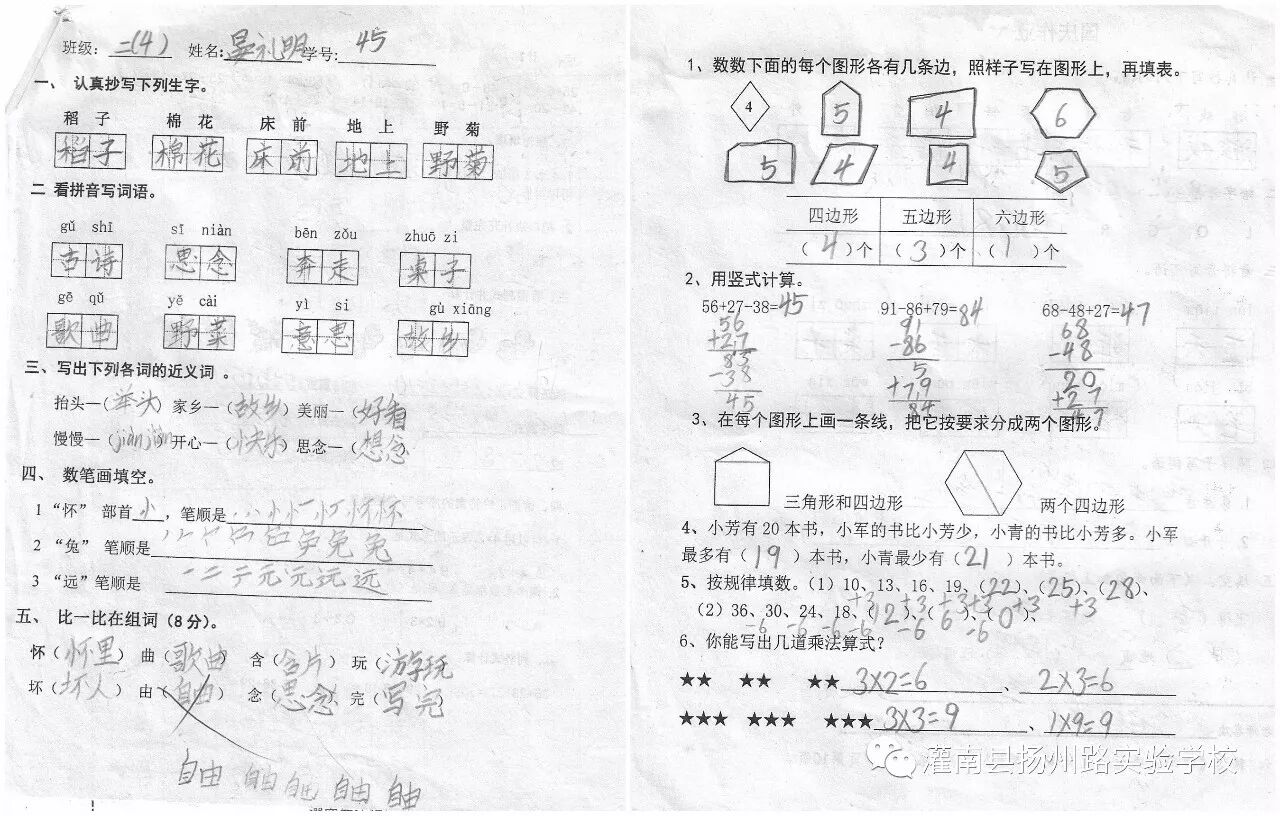 班级：二(4) 姓名：晏礼明 学号：45
一、 认真抄写下列生字。
稻 子 棉 花 床 前 地 上 野 菊
稻子 棉花 床前 地上 野菊
二 看拼音写词语。
gǔ shī sī niàn bēn zǒu zhuō zi
古诗 思念 奔走 桌子
gē qǔ yě cài yì si gù xiāng
歌曲 野菜 意思 故乡
三、写出下列各词的近义词 。
抬头—（举头）家乡—（故乡）美丽—（好看
慢慢—（jiànjiàn）开心—（快乐）思念—（想念
四、 数笔画填空。
1 “怀” 部首忄，笔顺是
2 “兔” 笔顺是
3 “远”笔顺是
五、 比一比在组词（8 分）。
怀（怀里） 曲（歌曲） 含（含片） 玩（游玩
坏（坏人） 由（自由） 念（思念）、完（写完）
自由 自由 自由 自由 自由
1、数数下面的每个图形各有几条边，照样子写在图形上，再填表。
4 5 4 6
5 4 4 5
四边形 五边形 六边形
（4）个 （3）个 （1）个
2、用竖式计算。
56+27-38=45 91-86+79=84 68-48+27=47
56 91 68
+27 -86 -48
83 5 20
-38 +79 +27
45 84 47
3、在每个图形上画一条线，把它按要求分成两个图形。
三角形和四边形 两个四边形
4、小芳有 20 本书，小军的书比小芳少，小青的书比小芳多。小军
最多有（19 ）本书，小青最少有（21 ）本书。
5、按规律填数。（1）10、13、16、19、（22）、（25）、（28）、
+3 +3 +3 +3 +3 +3
（2）36、30、24、18、（12）、（6）、（0）、
-6 -6 -6 -6 -6 -6
6、你能写出几道乘法算式？
★★ ★★ ★★3×2=6、2×3=6
★★★ ★★★ ★★★3×3=9、1×9=9
灌南县扬州路实验学校